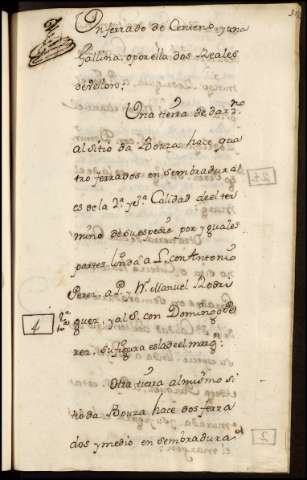 Un ferrado de Centeno, y una
Gallina, o por ella dos Reales
de vellon;
Una tierra de dar. no
al sitio da Bouza hace qua
tro ferrados en sembradura al
es de la 2.ª y 3.ª Calidad de el ter
mino de su especie por yguales
partes linda a L. con Antonio
Perez, a P. y N. Manuel Rodri
guez, y al S. con Domingo
rez, su figura es la de el marg.
Otra tierra al mismo si
tio da Bouza hace dos ferra
dos y medio en sembradura
4
2